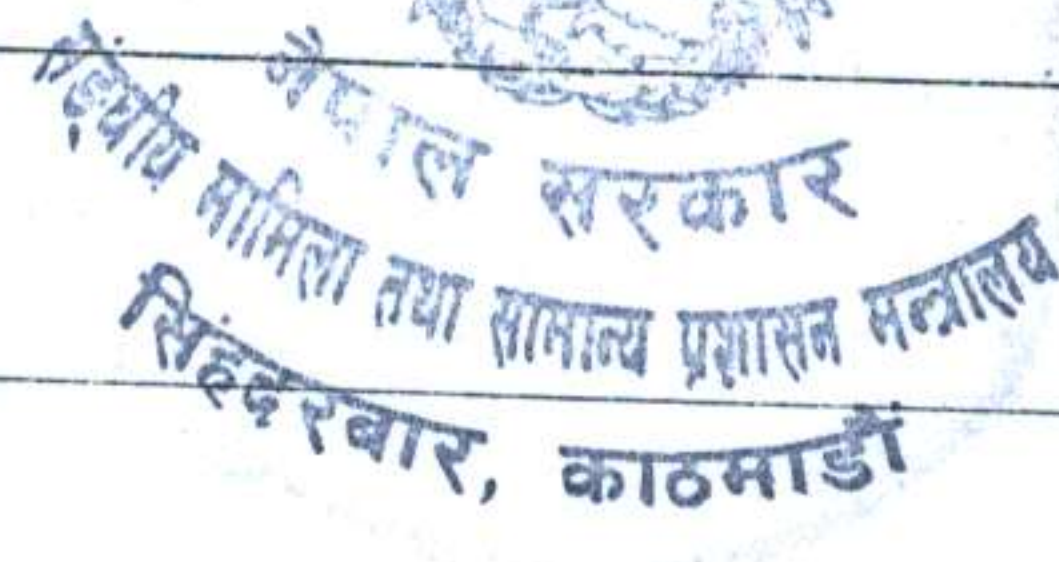 नेपाल सरकार
सङ्घीय मामिला तथा सामान्य प्रशासन मन्त्रालय
सिंहदरबार, काठमाडौं